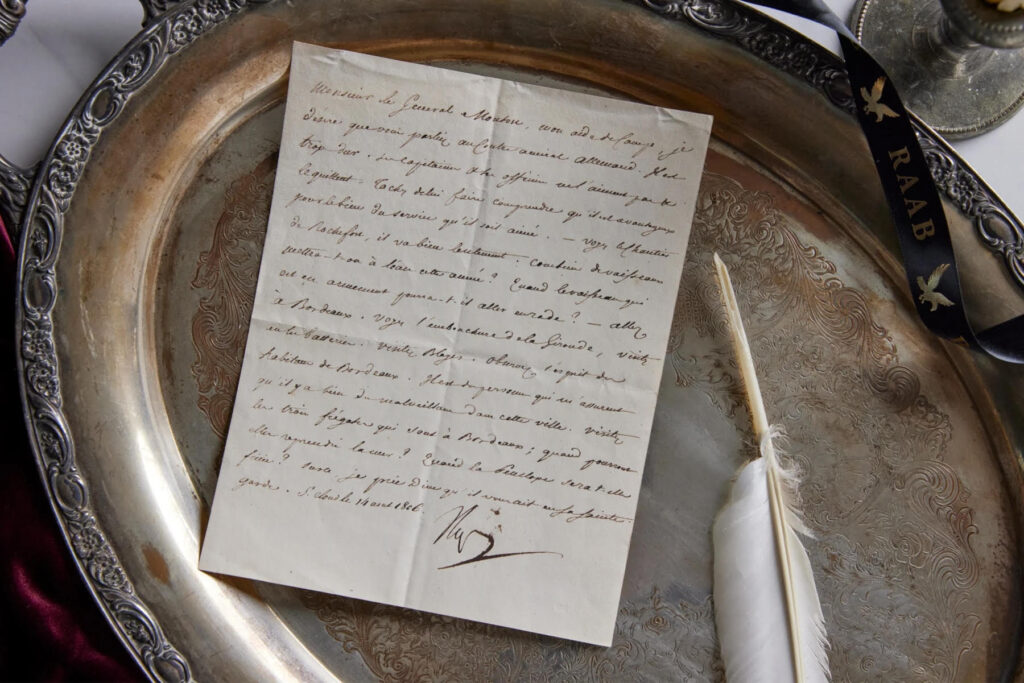 Monsieur le Général Mouton, mon aide de camp, je
désire que vous parliez au Contre amiral allemand. Il est
trop dur. Les Capitaines et les officiers ne l'aiment pas et
le quittent. Tachez de lui faire comprendre qu'il est avantageux
pour le bien du service qu'il soit aimé. — Voyez les chantiers
de Rochefort, il va bien lentement — combien de vaisseaux
mettra-t-on à l'eau cette année? Quand le vaisseau qui
est en armement pourra-t-il aller en rade? — allez
à Bordeaux. Voyez l'embouchure de la Gironde, visitez
en les batteries. Visitez Blaye. observez l'esprit des
habitans de Bordeaux. Il est des personnes qui m'assurent
qu'il y a bien du malveillans dans cette ville. Visitez
les trois frégates qui sont à Bordeaux; quand pourront
elles reprendre la mer? Quand la Pénélope sera-t-elle
finie? Sur ce je prie Dieu qu'il vous ait en sa Sainte
garde. St. Cloud le 14 aout 1806.
Nap
RAAB